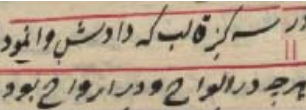 در سه گز قالب که دادش وا نمود
هرچه در الواح و در ارواح بود